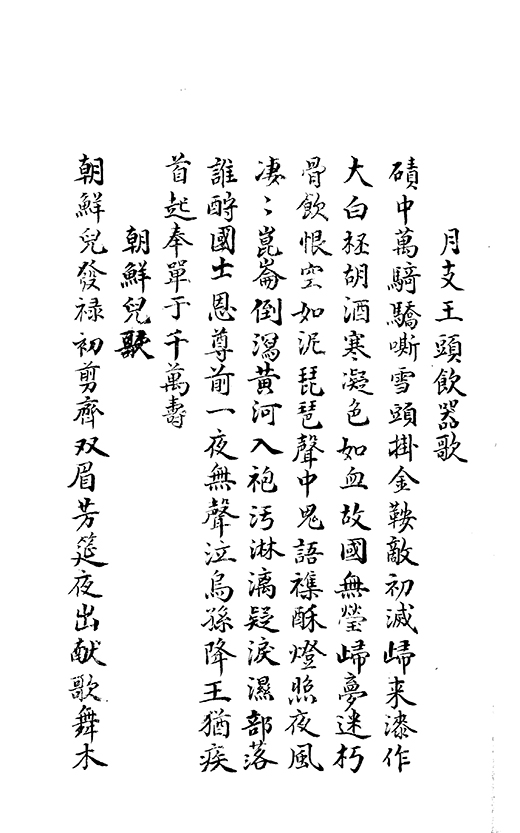 月支王頭飲器歌
磧中萬騎驕嘶雪頭掛金鞍敵初滅㱕来漆作
大白柸胡酒寒凝色如血故國無瑩㱕夢迷朽
骨飲恨空如泥琵琶聲中鬼語襍酥燈照夜風
凄〻崑崙倒瀉黄河入袍汚淋漓疑淚濕部落
誰酧國士恩尊前一夜無聲泣烏孫降王猶疾
首起奉單于千萬壽
朝鮮兒歌
朝鮮兒發禄初剪齊双眉芳筵夜出献歌舞木